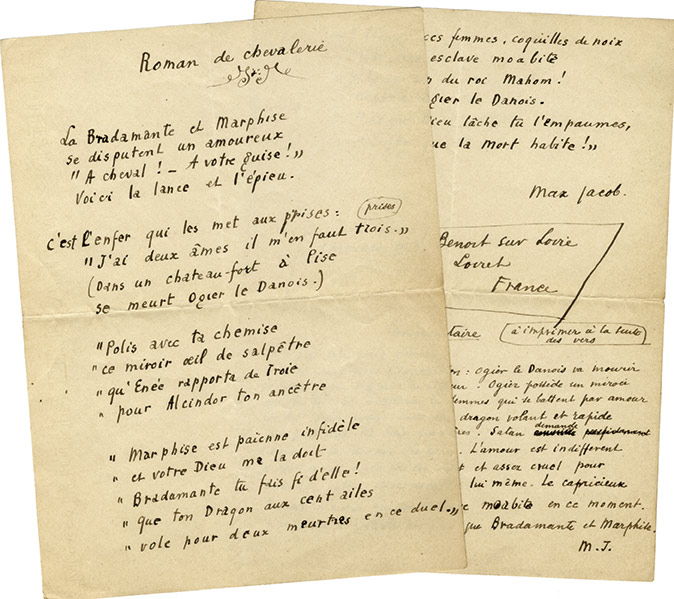 Roman de chevalerie
La Bradamante et Marphise
se disputent un amoureux
"A cheval! – A votre guise!"
Voici la lance et l'épieu.
C'est l'enfer qui les met aux prises: (prises)
"J'ai deux âmes il m'en faut trois."
(Dans un chateau-fort à Pise
se meurt Ogier le Danois.)
"Polis avec ta chemise
"ce miroir œil de salpêtre
"qu'Enée rapporta de Troie
"pour Alcindor ton ancêtre
"Marphise est païenne infidèle
"et votre Dieu me la doit
"Bradamante tu fais fi d'elle!
"que ton Dragon aux cent ailes
"vole pour deux meurtres en ce duel."
ces femmes, coquilles de noix
esclave moabite
du roc Mahom!
Ogier le Danois.
Dieu lâche tu l'empaumes,
que la Mort habite!"
Max Jacob.
Benoit sur Loire
Loiret
France
(à imprimer à la suite
des vers)
: Ogier le Danois va mourir
. Ogier possède un miroir
femmes qui se battent par amour
dragon volant et rapide
. Satan demande
. L'amour est indifférent
et assez cruel pour
lui même. Le capricieux
moabite en ce moment.
que Bradamante et Marphise.
M.J.